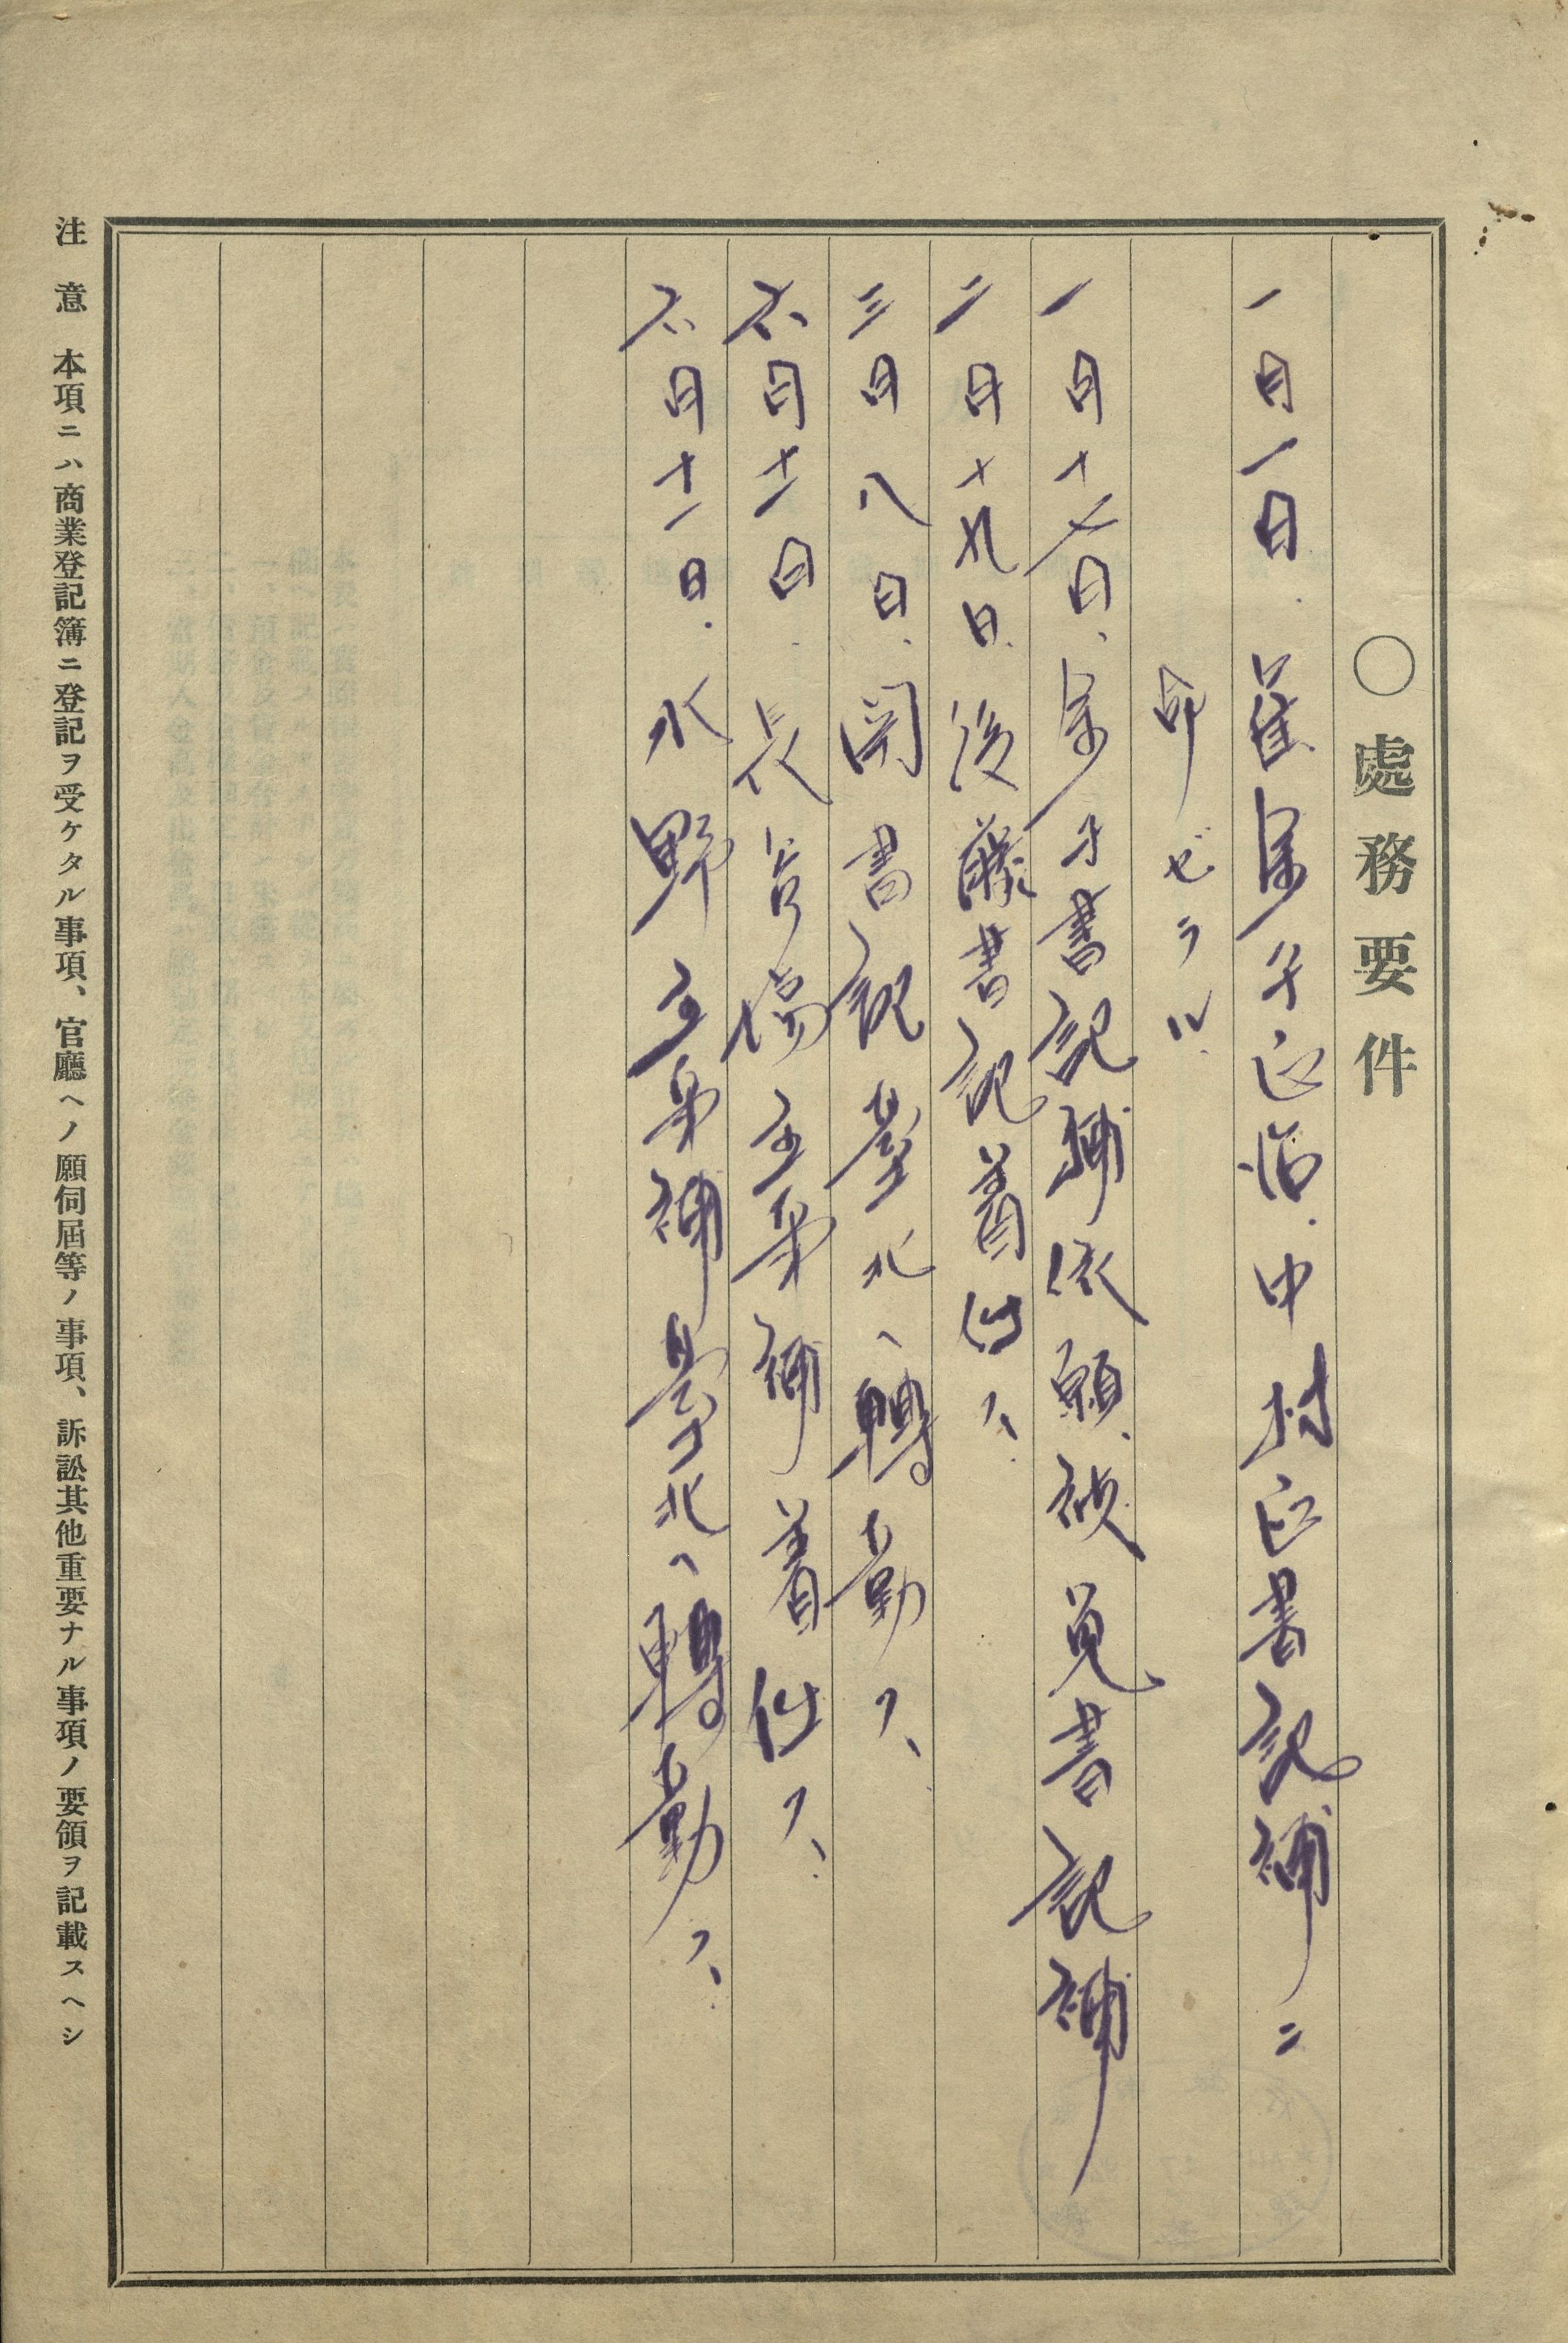 〇處務要件
一月一日、雇金子正治、中村正書記補ニ
命ゼラル
一月十七日、金子書記補依願被免書記補
二月十九日、後藤書記着任ス、
三月八日、関書記臺北ヘ轉勤ス、
六月十一日、長谷場主事補着任ス、
六月十一日、水野主事補臺北ヘ轉勤ス、
注意 本項ニハ商業登記簿ニ登記ヲ受ケタル事項、官廳ヘノ願伺屆等ノ事項、訴訟其他重要ナル事項ノ要領ヲ記載スヘシ